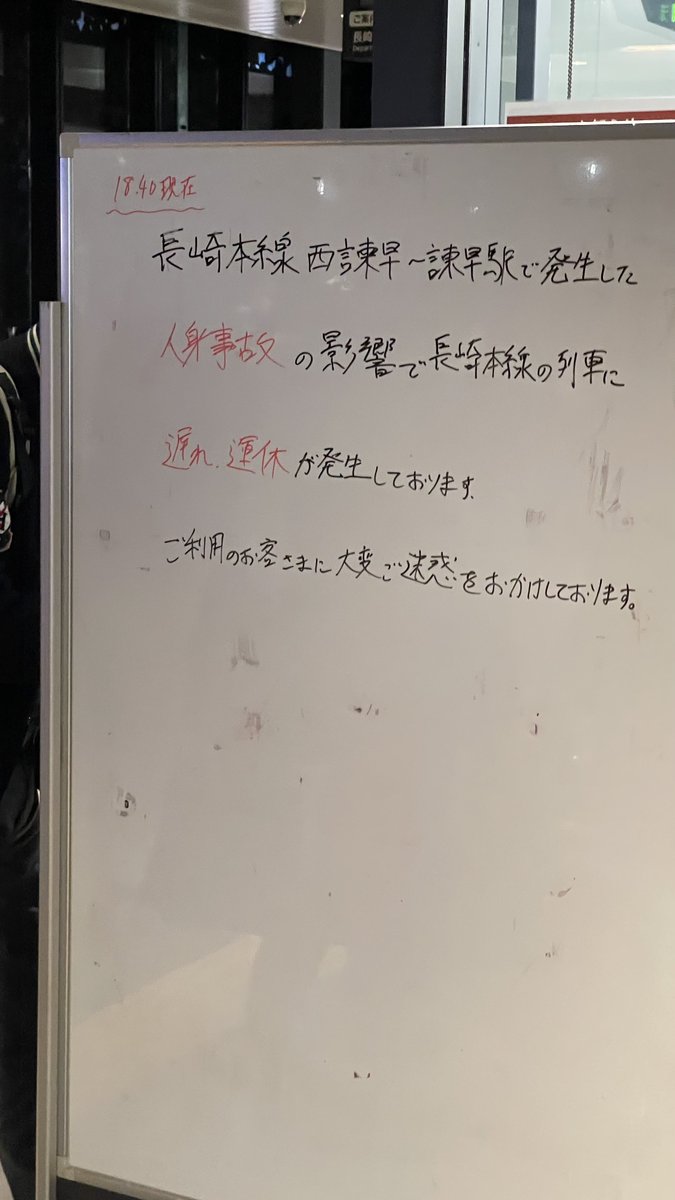 ご案
長崎
Depar
18.40現在
長崎本線 西諫早～諫早駅で発生した
人身事故の影響で長崎本線の列車に
遅れ、運休が発生しております。
ご利用のお客さまに大変ご迷惑をおかけしております。